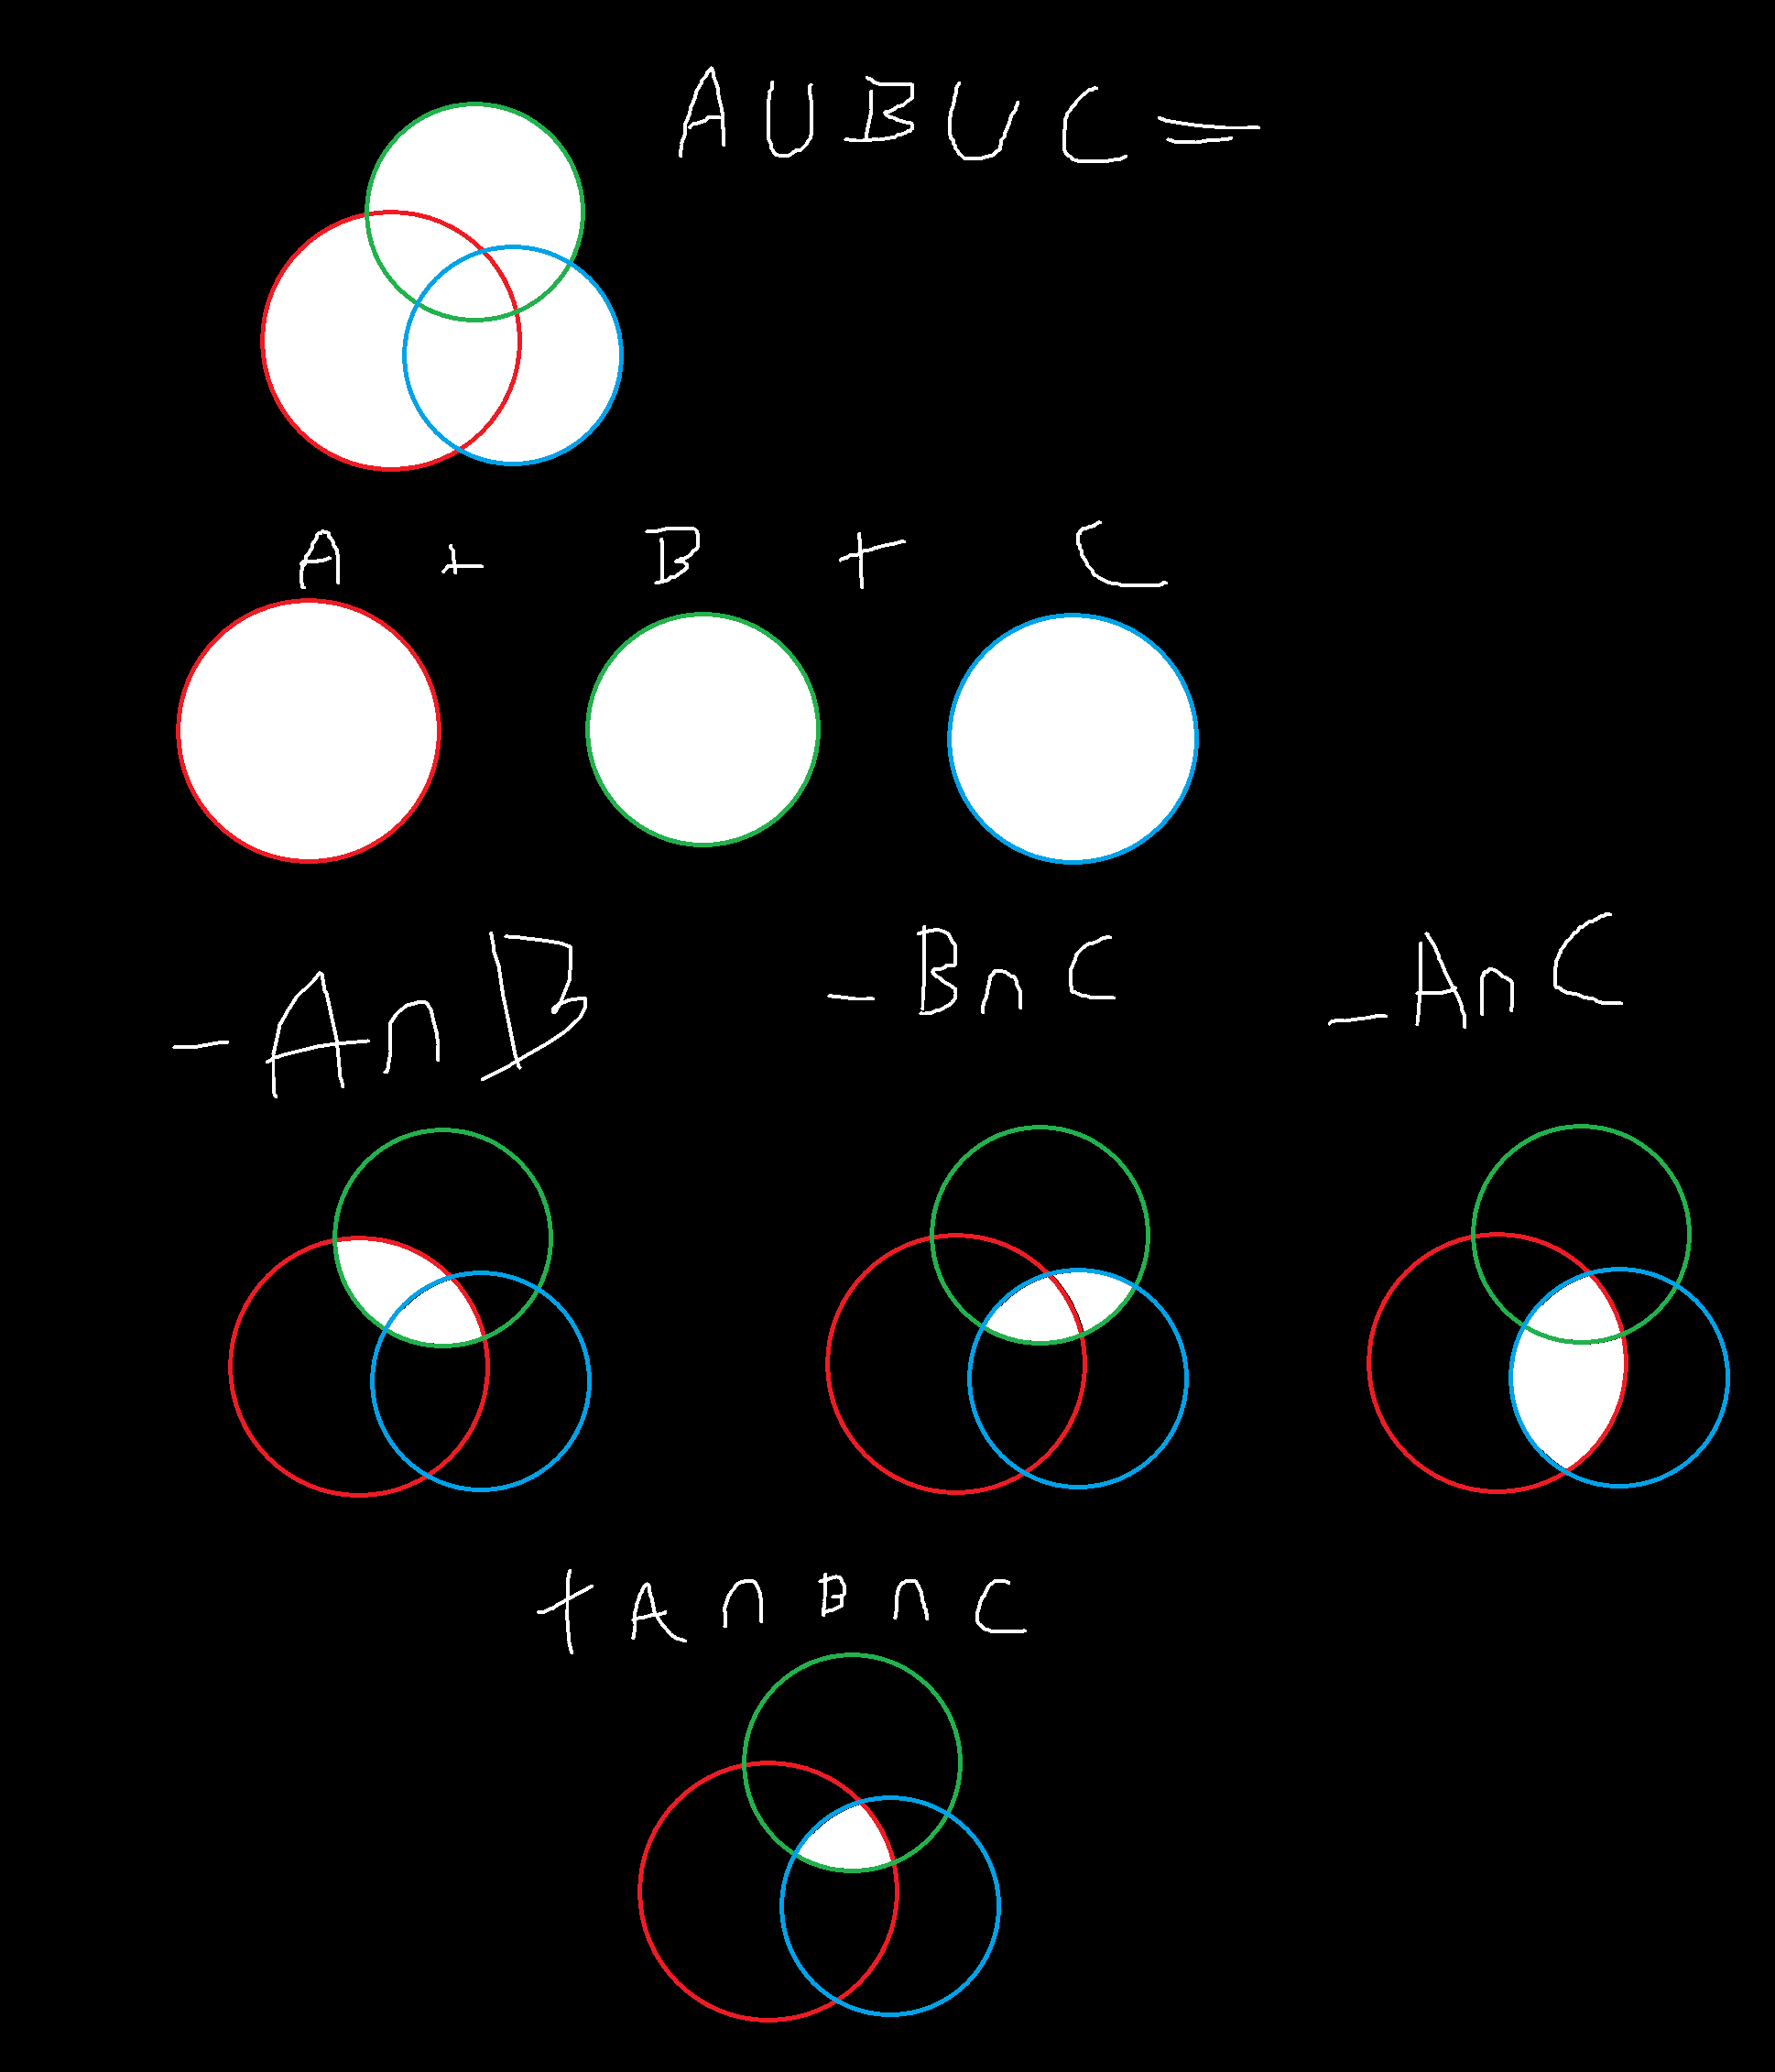 A U B U C =
A + B + C
- A ∩ B - B ∩ C - A ∩ C
+ A ∩ B ∩ C